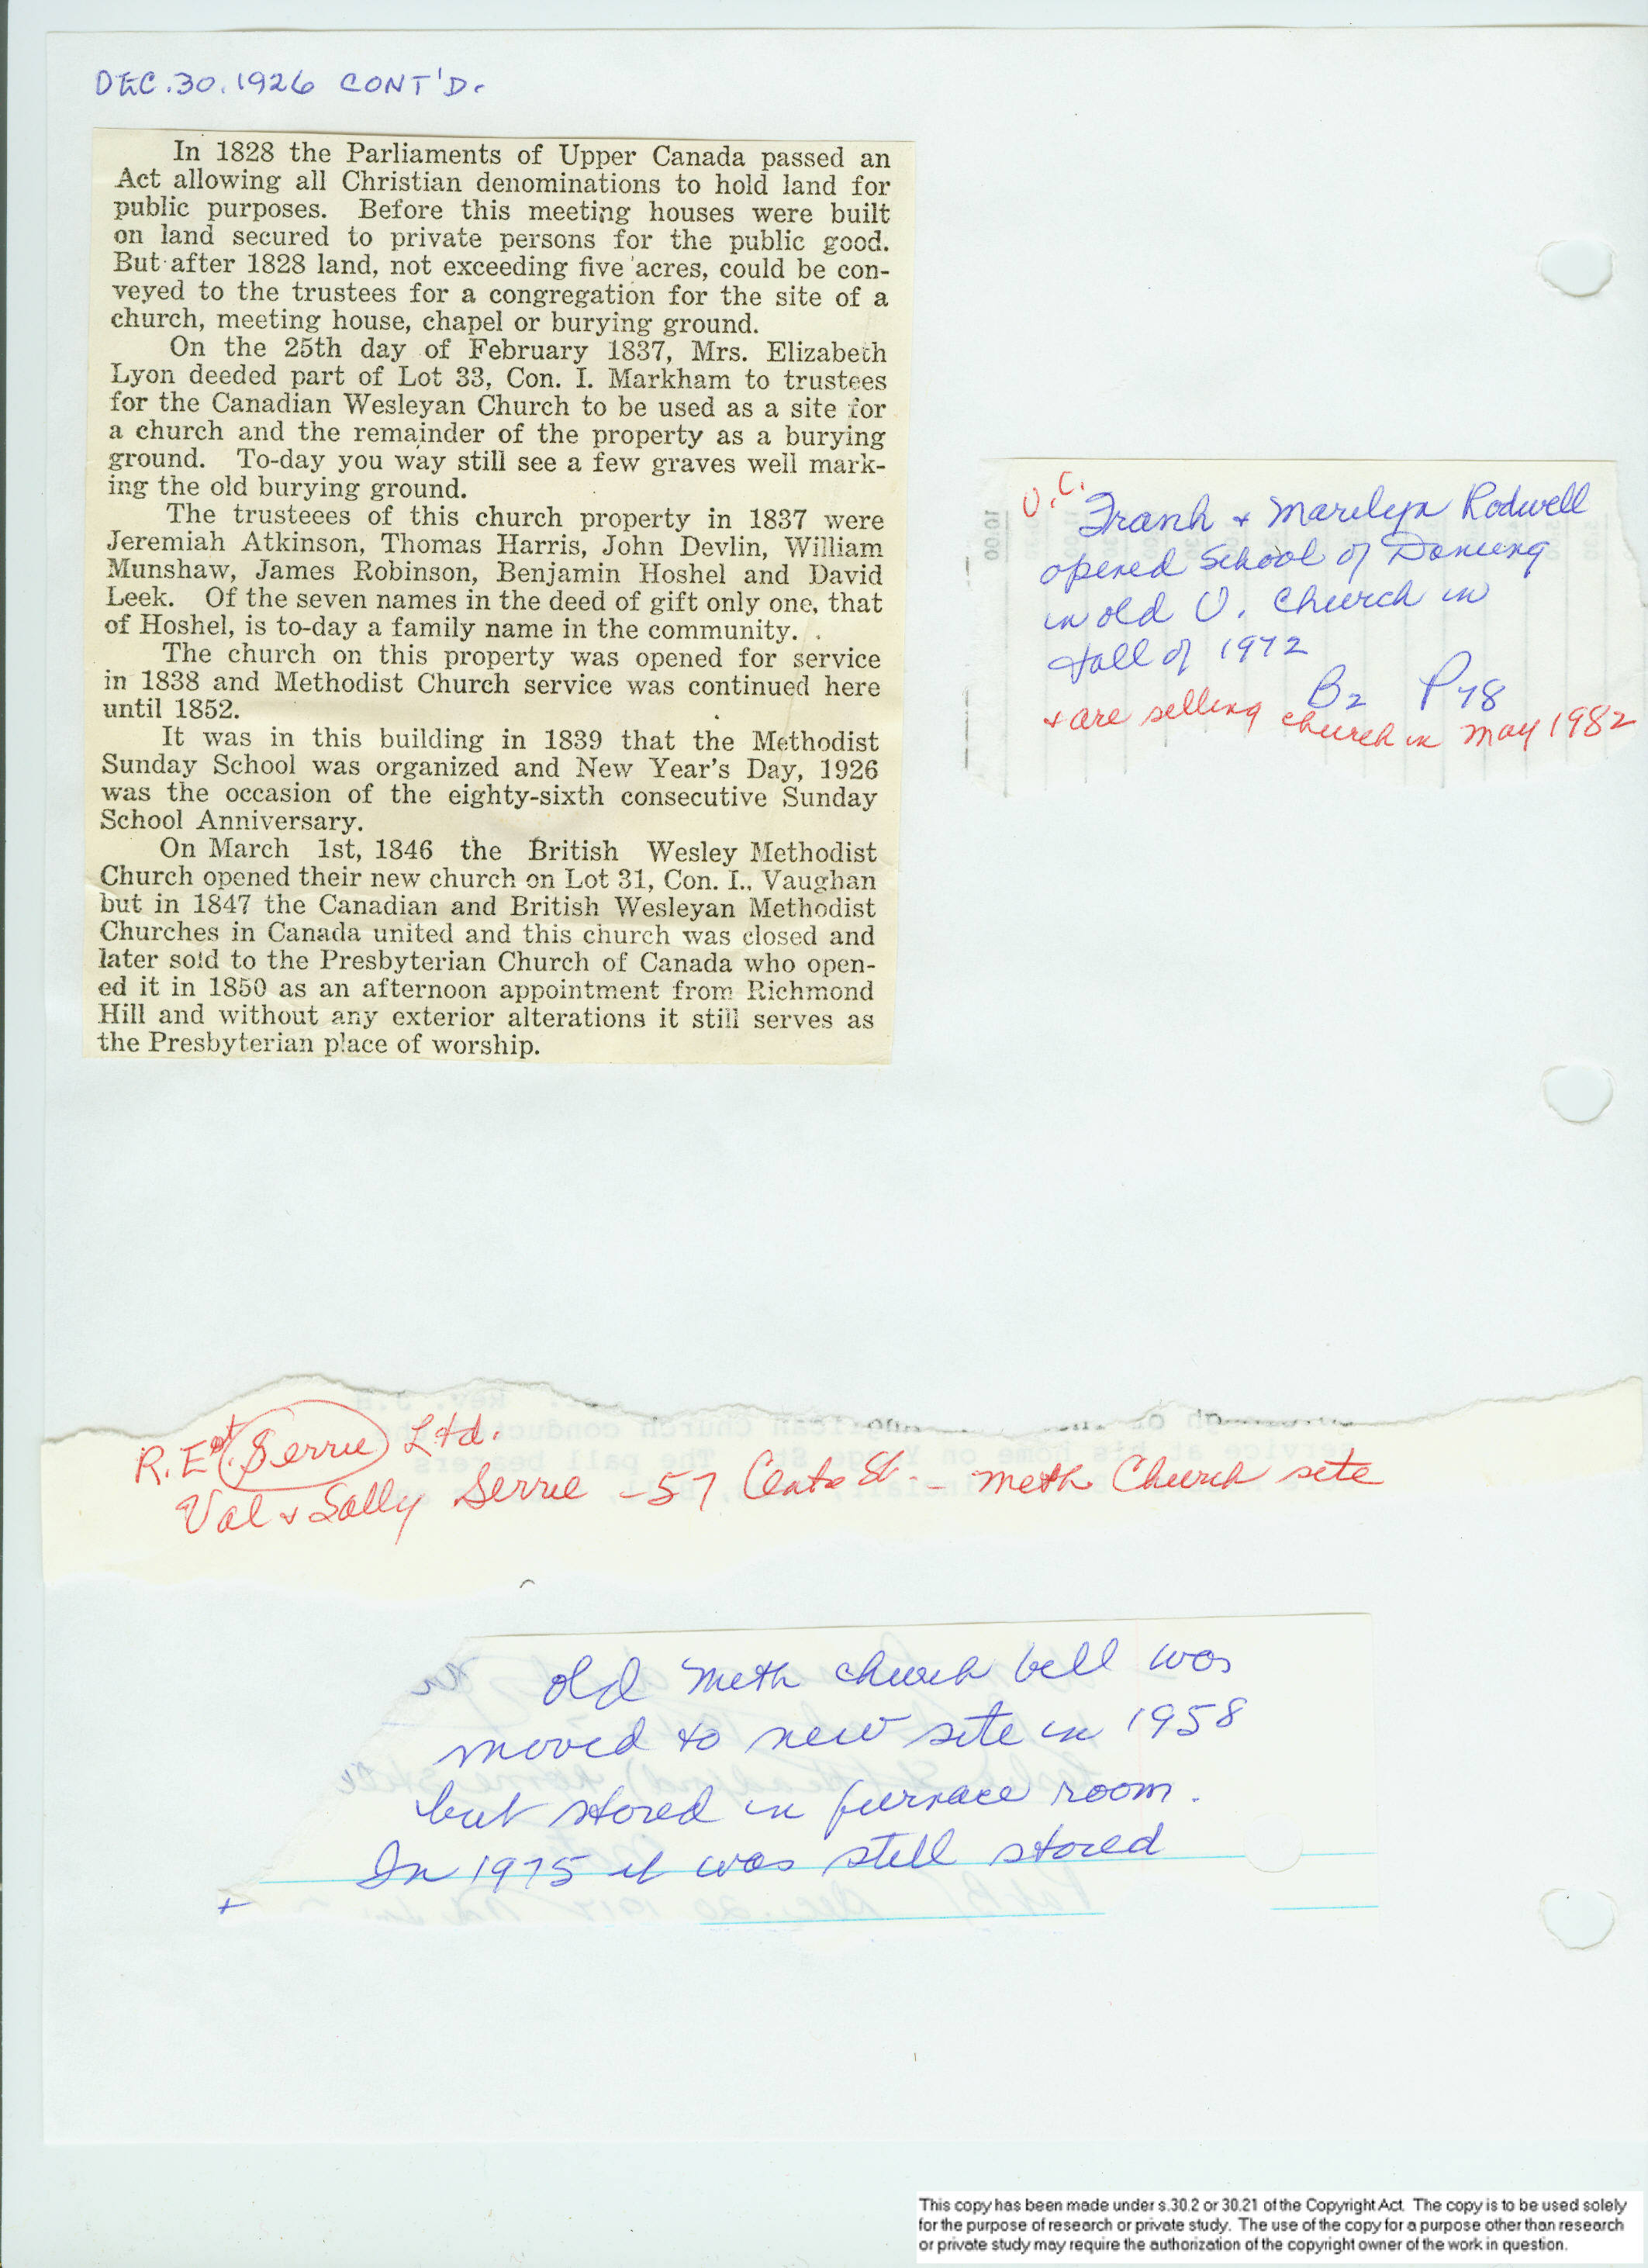 DEC.30.1926 CONT'D.
In 1828 the Parliaments of Upper Canada passed an
Act allowing all Christian denominations to hold land for
public purposes. Before this meeting houses were built
on land secured to private persons for the public good.
But after 1828 land, not exceeding five acres, could be con-
veyed to the trustees for a congregation for the site of a
church, meeting house, chapel or burying ground.
On the 25th day of February 1837, Mrs. Elizabeth
Lyon deeded part of Lot 33, Con. I. Markham to trustees
for the Canadian Wesleyan Church to be used as a site for
a church and the remainder of the property as a burying
ground. To-day you way still see a few graves well mark-
ing the old burying ground.
The trusteees of this church property in 1837 were
Jeremiah Atkinson, Thomas Harris, John Devlin, William
Munshaw, James Robinson, Benjamin Hoshel and David
Leek. Of the seven names in the deed of gift only one, that
of Hoshel, is to-day a family name in the community.
The church on this property was opened for service
in 1838 and Methodist Church service was continued here
until 1852.
It was in this building in 1839 that the Methodist
Sunday School was organized and New Year's Day, 1926
was the occasion of the eighty-sixth consecutive Sunday
School Anniversary.
On March 1st, 1846 the British Wesley Methodist
Church opened their new church on Lot 31, Con. I., Vaughan
but in 1847 the Canadian and British Wesleyan Methodist
Churches in Canada united and this church was closed and
later sold to the Presbyterian Church of Canada who open-
ed it in 1850 as an afternoon appointment from Richmond
Hill and without any exterior alterations it still serves as
the Presbyterian place of worship.
U.C.
Frank + Marilyn Rodwell
opened School of Dancing
in old U. Church in
fall of 1972
B2 P78
+ are selling church in May 1982
R. Est. Serre Ltd.
Val + Sally Serre - 57 Centre St - Meth Church site
old Meth church bell was
moved to new site in 1958
but stored in furnace room.
In 1975 it was still stored
This copy has been made under s.30.2 or 30.21 of the Copyright Act. The copy is to be used solely
for the purpose of research or private study. The use of the copy for a purpose other than research
or private study may require the authorization of the copyright owner of the work in question.